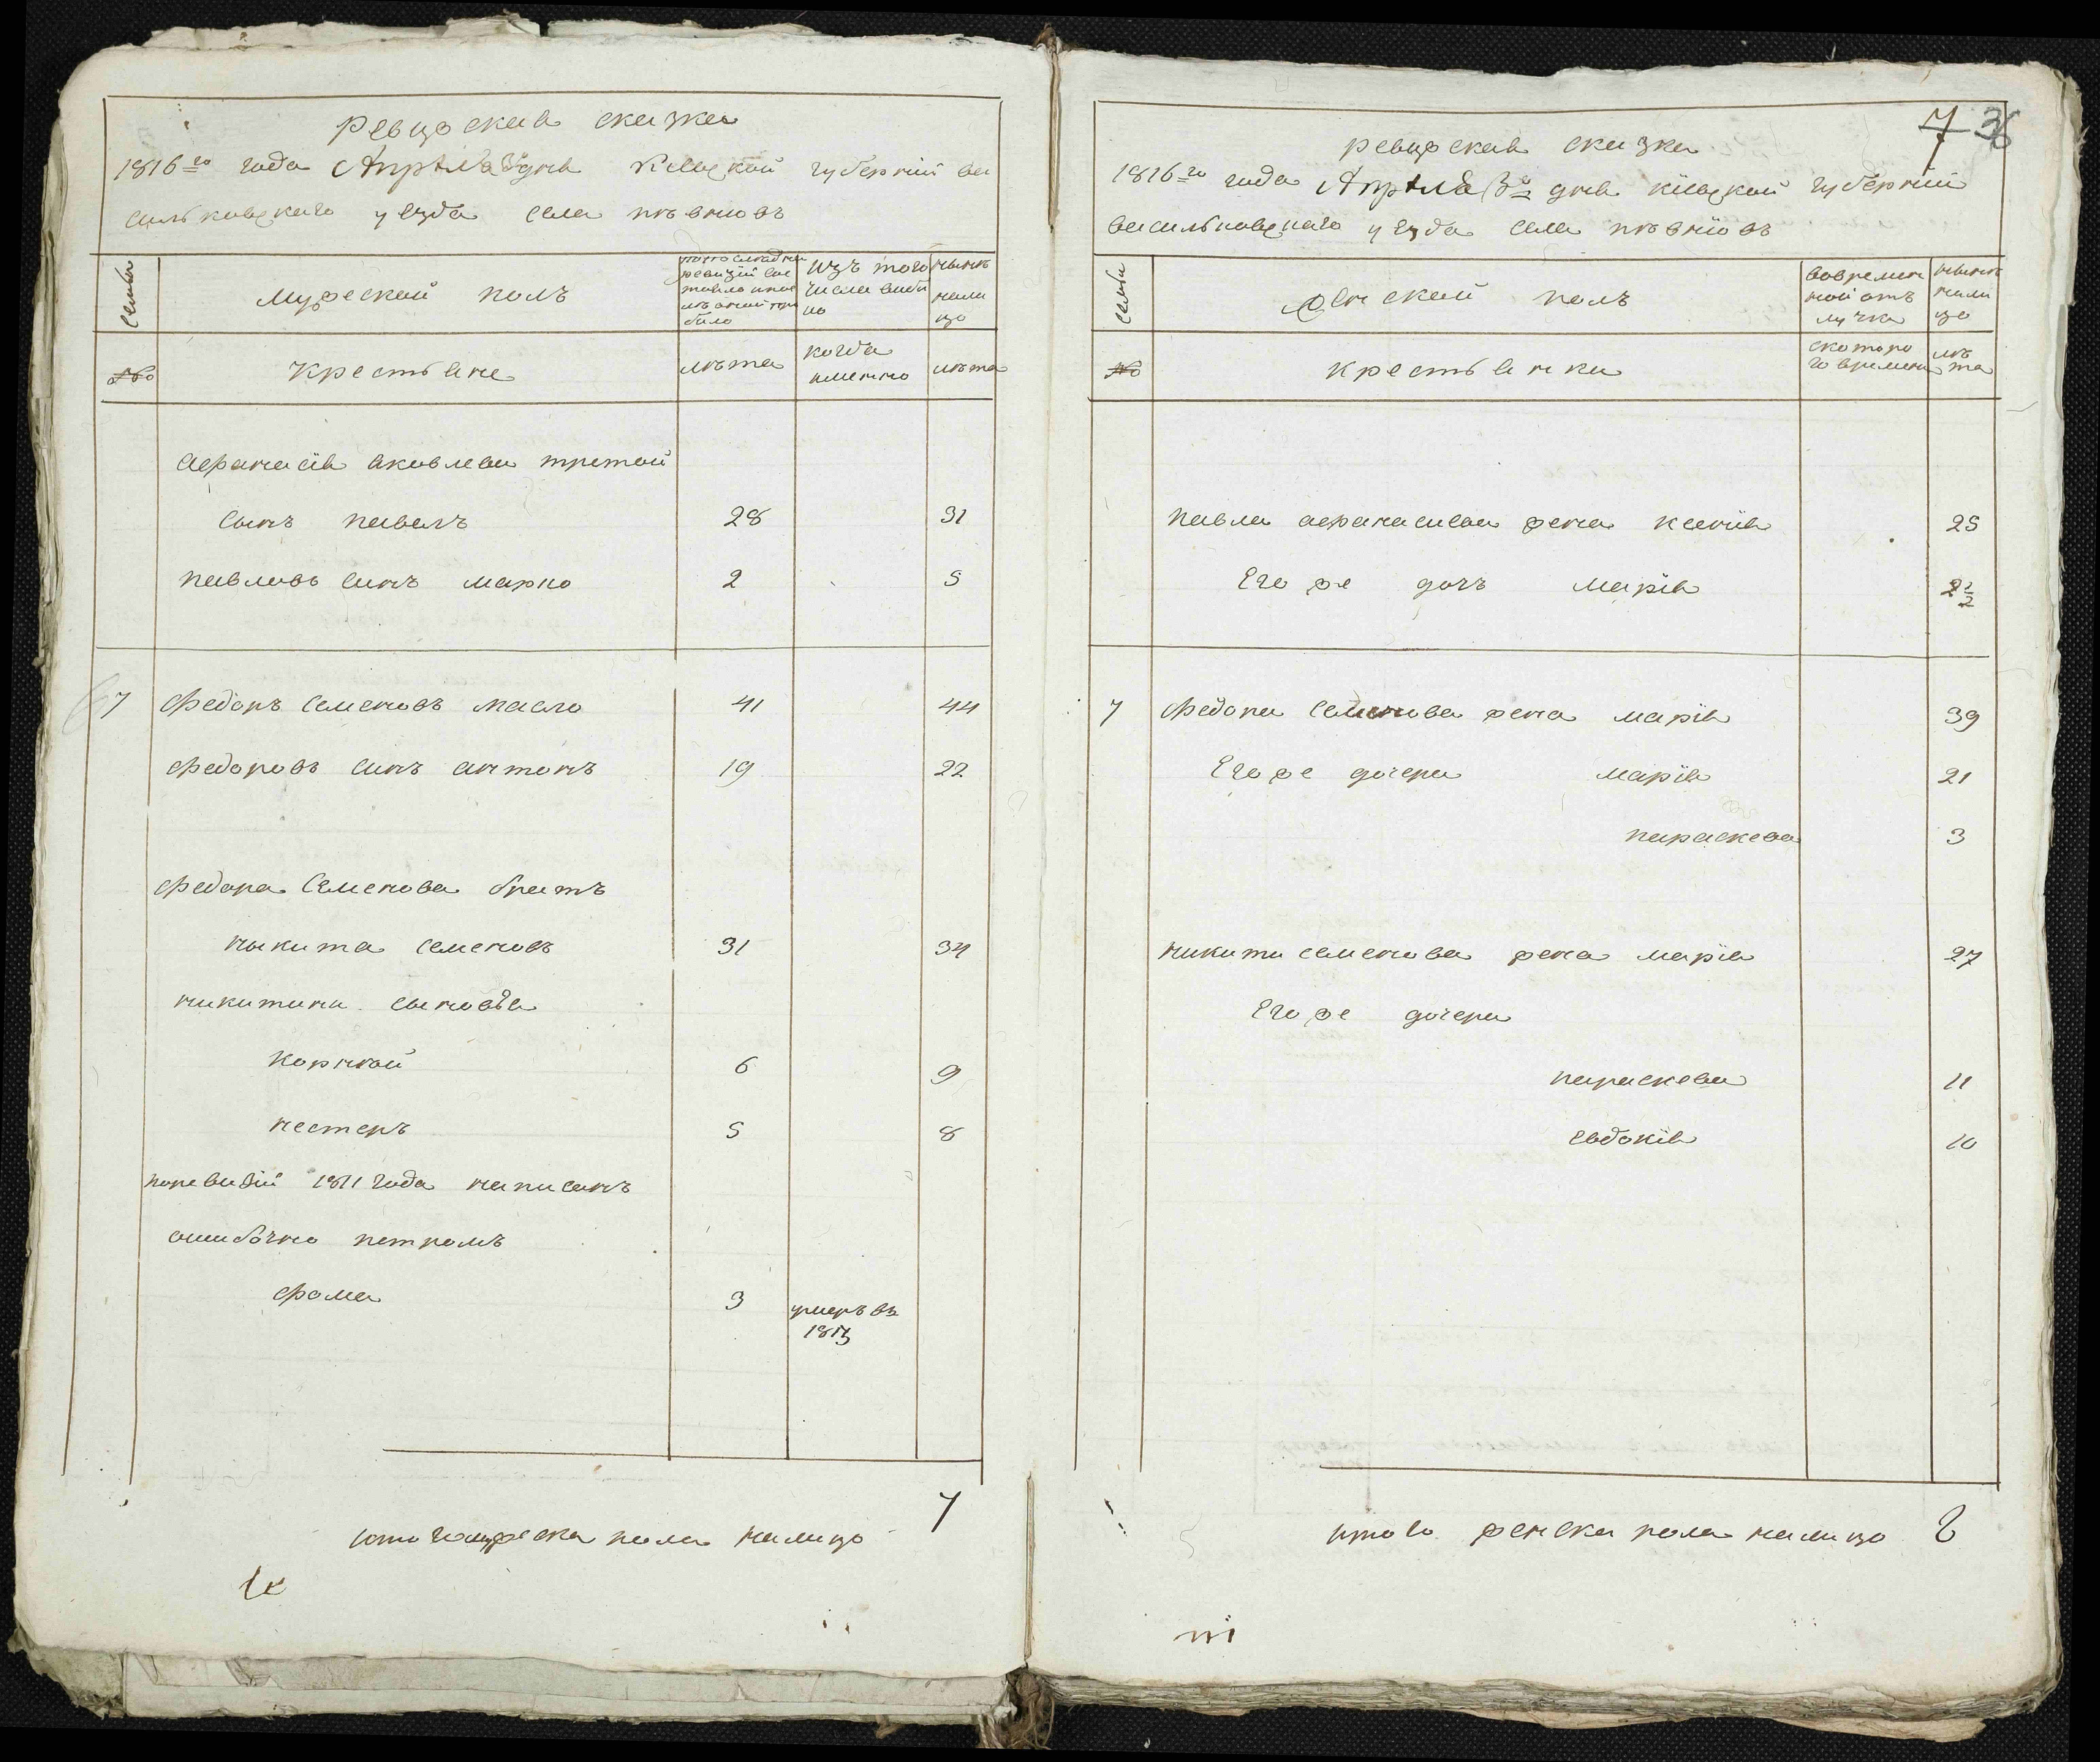 ревизская сказка
1816го года Апрѣля 3 дня Киевской губернии ва
сильковского уезда села пѣвнювъ
семьи
мужеской полъ
по последней
ревизии сос
тояло и пос
лѣ оной при
было
изъ того
числа выбы
ло
нынѣ
нали
цо
№
крестьяне
лѣта
когда
именно
лѣта
афанасія яковлева третой
сынъ павелъ 28 31
павловъ сынъ марко 2 5
7 Федоръ семеновъ масло 41 44
Федоровъ синъ антонъ 19 22
Федора Семенова братъ
никита семеновъ 31 34
никитини сыновья
корнѣй 6 9
нестеръ 5 8
по ревизій 1811 года написанъ
ошибочно петромъ
фома 3 умеръ въ
1813
итого мужеска пола налицо 7
7 36
ревизская сказка
1816го года Апрѣля 3го дня кіевской губерній
васильковского уезда села пѣвнювъ
семьи
женской полъ
во времен
ной отъ
лучке
нынѣ
нали
цо
№
крестьянки
с котора
го времени
лѣ
та
павла афанасиева жена ксенія 25
Его же дочь марія 2 1/2
7 Федора семенова жена марія 39
Его же дочери марія 21
параскева 3
никити семенова жена марія 27
Его же дочери
параскева 11
евдокія 10
итого женска пола налицо 8